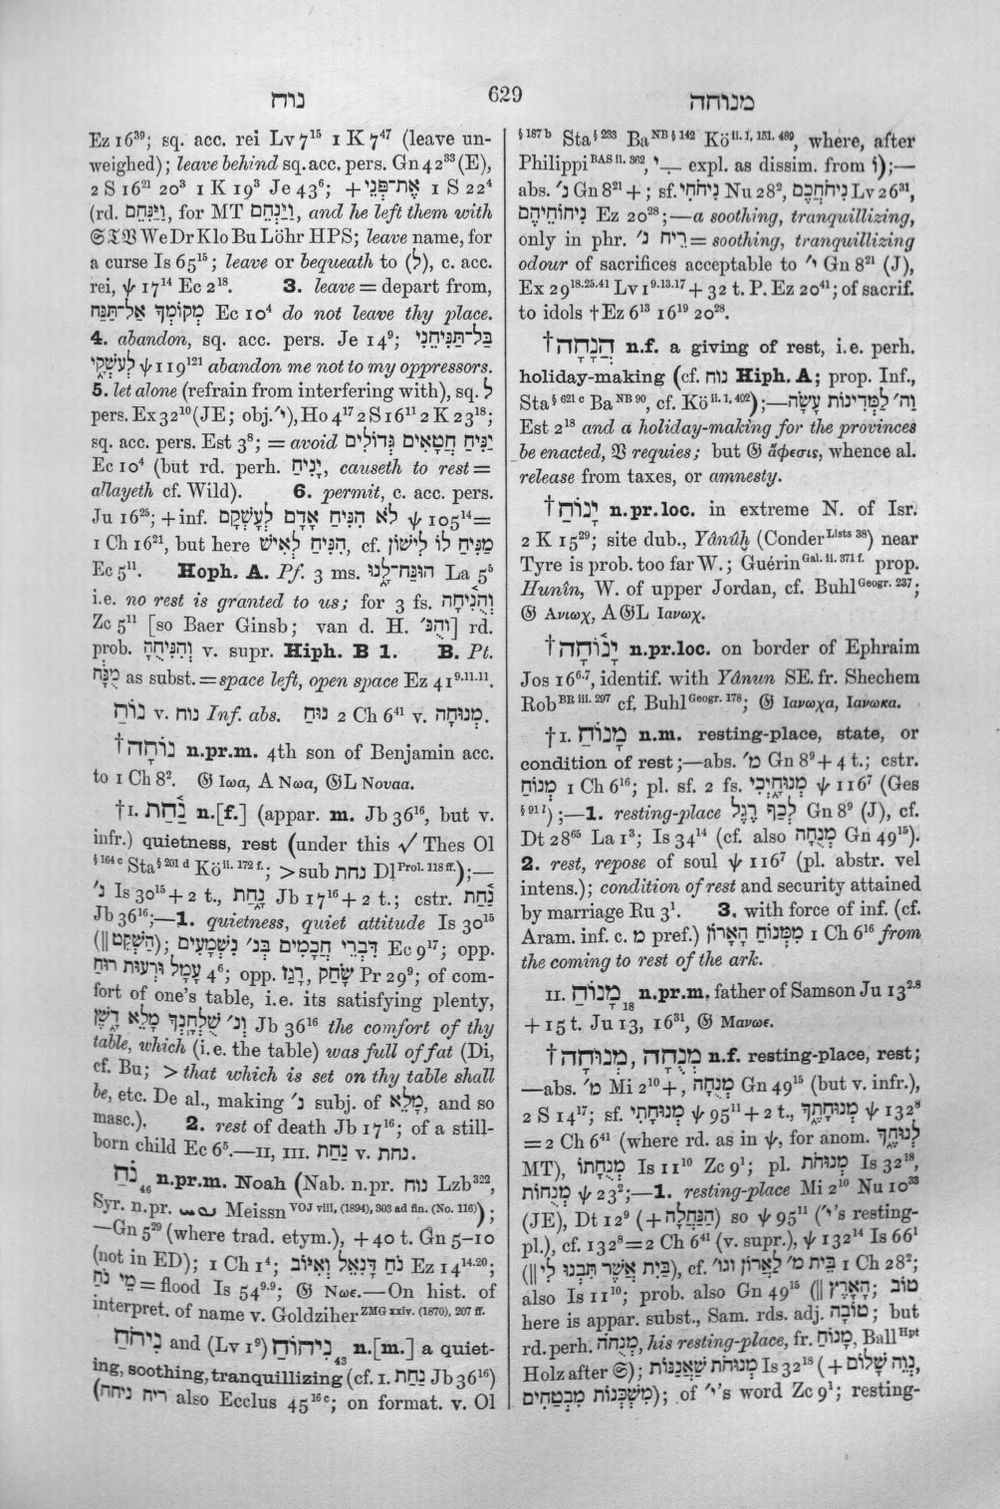 נוח
629
מנוחה
Ez 16³⁹; sq. acc. rei Lv 7¹⁵ 1 K 7⁴⁷ (leave un-
weighed); leave behind sq. acc. pers. Gn 42³³ (E),
2 S 16²¹ 20³ 1 K 19³ Je 43⁶; + אֶת־פְּנֵי 1 S 22⁴
(rd. וַיַּנִּחֵם, for MT וַיַּנְחֵם, and he left them with
𝔊𝔗𝔙 We Dr Klo Bu Löhr HPS; leave name, for
a curse Is 65¹⁵; leave or bequeath to (לְ), c. acc.
rei, ψ 17¹⁴ Ec 2¹⁸. 3. leave = depart from,
מְקוֹמְךָ אַל־תַּנַּח Ec 10⁴ do not leave thy place.
4. abandon, sq. acc. pers. Je 14⁹; בַּל־תַּנִּיחֵנִי
לְעֹשְׁקָי ψ 119¹²¹ abandon me not to my oppressors.
5. let alone (refrain from interfering with), sq. לְ
pers. Ex 32¹⁰ (JE; obj. י׳), Ho 4¹⁷ 2 S 16¹¹ 2 K 23¹⁸;
sq. acc. pers. Est 3⁸; = avoid יַנִּיחַ חֲטָאִים גְּדוֹלִים
Ec 10⁴ (but rd. perh. יָנִיחַ, causeth to rest =
allayeth cf. Wild). 6. permit, c. acc. pers.
Ju 16²⁶; + inf. לֹא הִנִּיחַ אָדָם לְעָשְׁקָם ψ 105¹⁴ =
1 Ch 16²¹, but here הִנִּיחַ לְאִישׁ, cf. מַנִּיחַ לוֹ לִישׁוֹן
Ec 5¹¹. Hoph. A. Pf. 3 ms. הוּנַח־לָנוּ La 5⁵
i.e. no rest is granted to us; for 3 fs. וְהֻנִּיחָה
Zc 5¹¹ [so Baer Ginsb; van d. H. וְהֻנ׳] rd.
prob. וְהִנִּיחֻהָ v. supr. Hiph. B 1. B. Pt.
מֻנָּח as subst. = space left, open space Ez 41⁹·¹¹·¹¹.
נוֹחַ v. נוח Inf. abs. נוּחַ 2 Ch 6⁴¹ v. מְנוּחָה.
†נוֹחָה n.pr.m. 4th son of Benjamin acc.
to 1 Ch 8². 𝔊 Ιωα, A Νωα, 𝔊L Νουαα.
†I. נַ֫חַת n.[f.] (appar. m. Jb 36¹⁶, but v.
infr.) quietness, rest (under this √ Thes Ol
§ 164 c Sta § 201 d Kö ii. 172 f.; > sub נחת Dl Prol. 118 ff.);—
נ׳ Is 30¹⁵ + 2 t., נָחַת Jb 17¹⁶ + 2 t.; cstr. נַחַת
Jb 36¹⁶;—1. quietness, quiet attitude Is 30¹⁵
(‖ הַשְׁקֵט); דִּבְרֵי חֲכָמִים בְּנ׳ נִשְׁמָעִים Ec 9¹⁷; opp.
עָמָל וּרְעוּת רוּחַ 4⁶; opp. שָׂחַק, רָגַז Pr 29⁹; of com-
fort of one's table, i.e. its satisfying plenty,
וְנ׳ שֻׁלְחָנְךָ מָלֵא דָשֶׁן Jb 36¹⁶ the comfort of thy
table, which (i.e. the table) was full of fat (Di,
cf. Bu; > that which is set on thy table shall
be, etc. De al., making נ׳ subj. of מָלֵא, and so
masc.). 2. rest of death Jb 17¹⁶; of a still-
born child Ec 6⁵.—II, III. נַחַת v. נחת.
נֹחַ ₄₆ n.pr.m. Noah (Nab. n.pr. נוח Lzb³²²,
Syr. n.pr. Meissn VOJ viii. (1894), 303 ad fin. (No. 116));
—Gn 5²⁹ (where trad. etym.), + 40 t. Gn 5–10
(not in ED); 1 Ch 1⁴; נֹחַ דָּנִאֵל וְאִיּוֹב Ez 14¹⁴·²⁰;
מֵי נֹחַ = flood Is 54⁹·⁹; 𝔊 Νωε.—On hist. of
interpret. of name v. Goldziher ZMG xxiv. (1870), 207 ff.
נִיחֹחַ and (Lv 1⁹) נִיחוֹחַ ₄₃ n.[m.] a quiet-
ing, soothing, tranquillizing (cf. I. נַחַת Jb 36¹⁶)
(ריח ניחח also Ecclus 45¹⁶ᶜ; on format. v. Ol
§ 187 b Sta § 233 Ba NB § 142 Kö ii. 1, 151. 489, where, after
Philippi BAS ii. 362, ִי expl. as dissim. from וֹ);—
abs. נ׳ Gn 8²¹ +; sf. נִיחֹחִי Nu 28², נִיחֹחֲכֶם Lv 26³¹,
נִיחוֹחֵיהֶם Ez 20²⁸;—a soothing, tranquillizing,
only in phr. רֵיחַ נ׳ = soothing, tranquillizing
odour of sacrifices acceptable to י׳ Gn 8²¹ (J),
Ex 29¹⁸·²⁵·⁴¹ Lv 1⁹·¹³·¹⁷ + 32 t. P. Ez 20⁴¹; of sacrif.
to idols †Ez 6¹³ 16¹⁹ 20²⁸.
†הֲנָחָה n.f. a giving of rest, i.e. perh.
holiday-making (cf. נוח Hiph. A; prop. Inf.,
Sta § 621 c Ba NB 90, cf. Kö ii. 1, 402);—וַה׳ לַמְּדִינוֹת עָשָׂה
Est 2¹⁸ and a holiday-making for the provinces
be enacted, 𝔙 requies; but 𝔊 ἄφεσις, whence al.
release from taxes, or amnesty.
†יָנוֹחַ n.pr.loc. in extreme N. of Isr.
2 K 15²⁹; site dub., Yânûḥ (Conder Lists 38) near
Tyre is prob. too far W.; Guérin Gal. ii. 371 f. prop.
Hunîn, W. of upper Jordan, cf. Buhl Geogr. 237;
𝔊 Ανιωχ, A𝔊L Ιανωχ.
†יָנ֫וֹחָה n.pr.loc. on border of Ephraim
Jos 16⁶·⁷, identif. with Yânun SE. fr. Shechem
Rob BR iii. 297 cf. Buhl Geogr. 178; 𝔊 Ιανωχα, Ιανωκα.
†I. מָנוֹחַ n.m. resting-place, state, or
condition of rest;—abs. מ׳ Gn 8⁹ + 4 t.; cstr.
מְנוֹחַ 1 Ch 6¹⁶; pl. sf. 2 fs. מְנוּחָיְכִי ψ 116⁷ (Ges
§ 91 l);—1. resting-place לְכַף רֶגֶל Gn 8⁹ (J), cf.
Dt 28⁶⁵ La 1³; Is 34¹⁴ (cf. also מְנֻחָה Gn 49¹⁵).
2. rest, repose of soul ψ 116⁷ (pl. abstr. vel
intens.); condition of rest and security attained
by marriage Ru 3¹. 3. with force of inf. (cf.
Aram. inf. c. מ pref.) מִמְּנוֹחַ הָאָרוֹן 1 Ch 6¹⁶ from
the coming to rest of the ark.
II. מָנוֹחַ ₁₈ n.pr.m. father of Samson Ju 13²·⁸
+ 15 t. Ju 13, 16³¹, 𝔊 Μανωε.
†מְנוּחָה, מְנֻחָה n.f. resting-place, rest;
—abs. מ׳ Mi 2¹⁰ +, מְנֻחָה Gn 49¹⁵ (but v. infr.),
2 S 14¹⁷; sf. מְנוּחָתִי ψ 95¹¹ + 2 t., מְנוּחָתֶךָ ψ 132⁸
= 2 Ch 6⁴¹ (where rd. as in ψ, for anom. לְנוּחֶךָ
MT), מְנֻחָתוֹ Is 11¹⁰ Zc 9¹; pl. מְנוּחֹת Is 32¹⁸,
מְנֻחוֹת ψ 23²;—1. resting-place Mi 2¹⁰ Nu 10³³
(JE), Dt 12⁹ (+ הַנַּחֲלָה) so ψ 95¹¹ (י׳'s resting-
pl.), cf. 132⁸ = 2 Ch 6⁴¹ (v. supr.), ψ 132¹⁴ Is 66¹
(‖ בַּיִת אֲשֶׁר תִּבְנוּ לִי), cf. בֵּית מ׳ לַאֲרוֹן וגו׳ 1 Ch 28²;
also Is 11¹⁰; prob. also Gn 49¹⁵ (‖ הָאָרֶץ; טוֹב
here is appar. subst., Sam. rds. adj. טובה; but
rd. perh. מְנֻחֹה, his resting-place, fr. מָנוֹחַ, Ball Hpt
Holz after 𝔖); מְנוּחֹת שַׁאֲנַנּוֹת Is 32¹⁸ (+ נְוֵה שָׁלוֹם,
מִשְׁכְּנוֹת מִבְטַחִים); of י׳'s word Zc 9¹; resting-